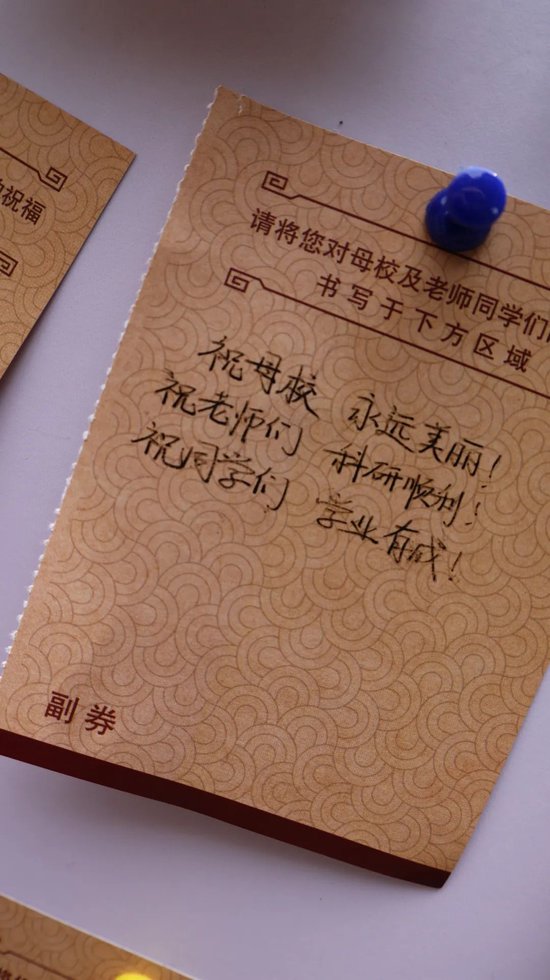 祝福
请将您对母校及老师同学们
书写于下方区域
祝母校 永远美丽!
祝老师们 科研顺利!
祝同学们 学业有成!
副券